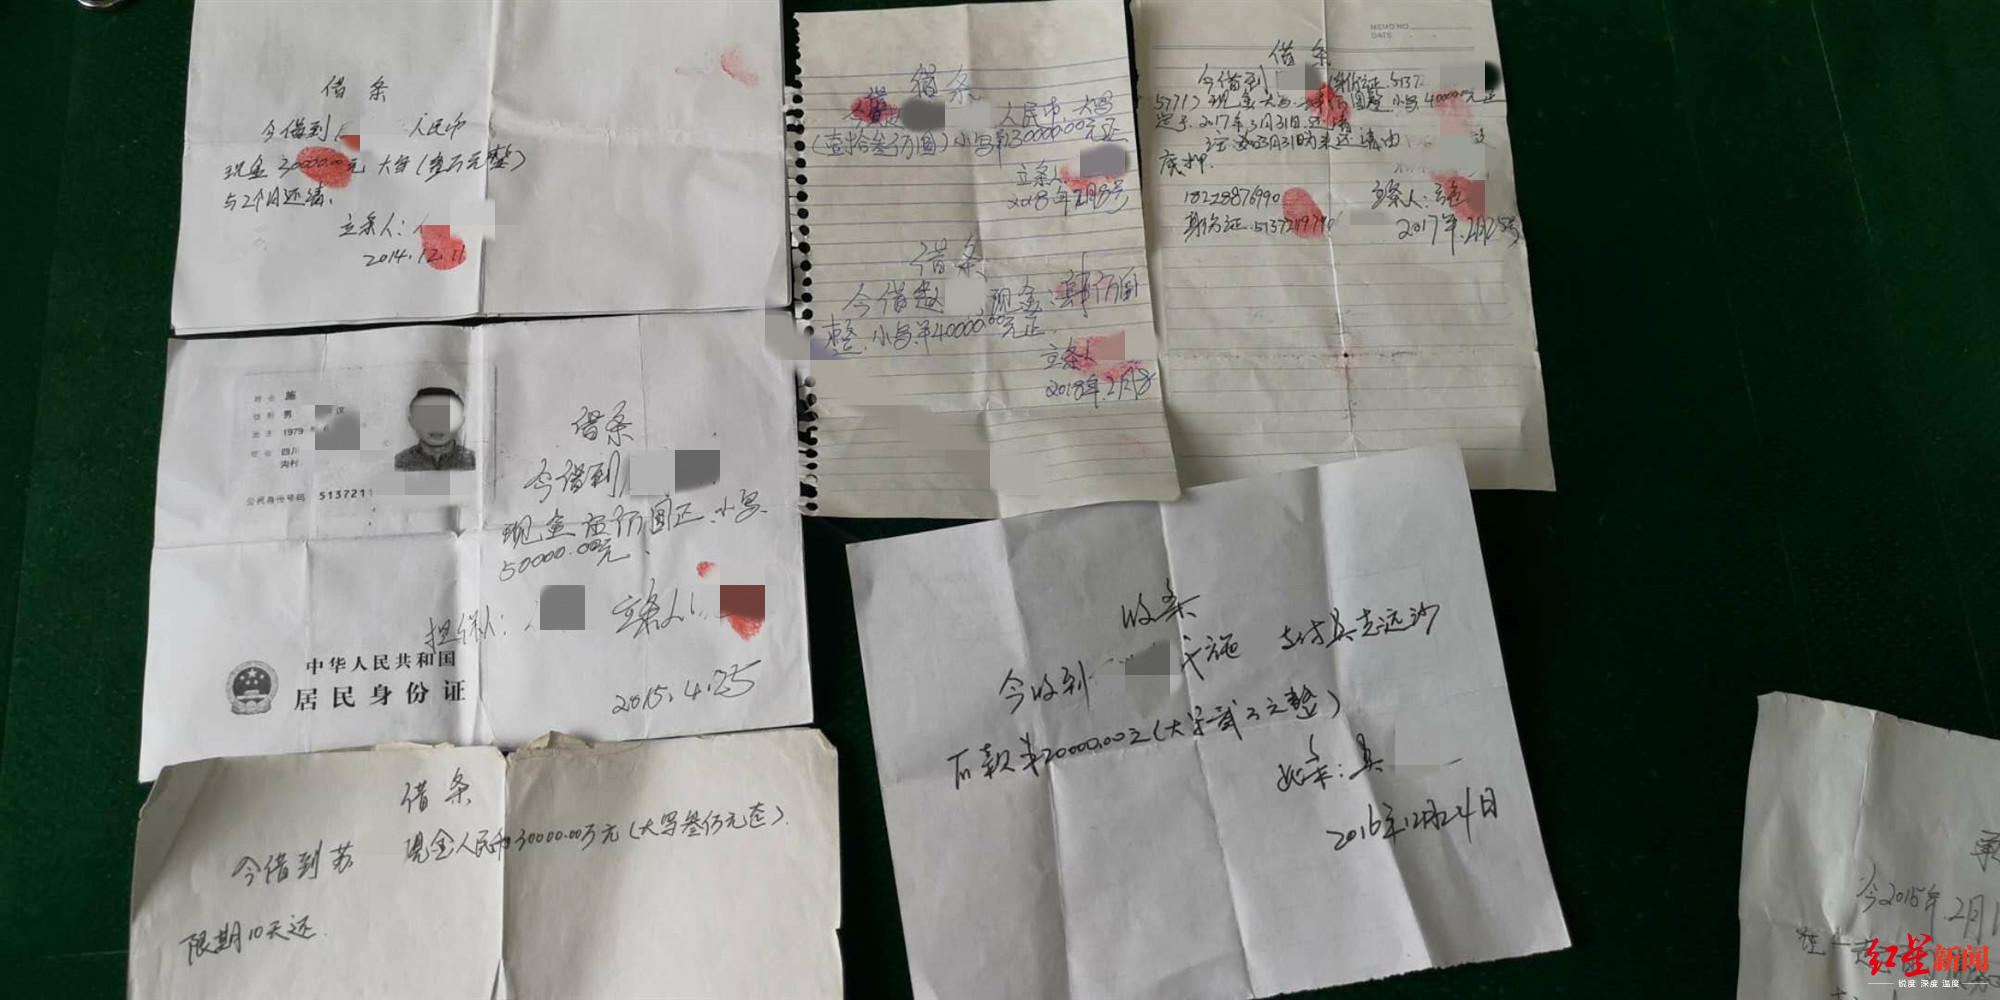 借条
今借到 人民币
现金30000.00元大写(叁万元整)
与2个月还清.
立条人:
2014.12.11
借条
人民币.大写
(壹拾叁万圆)小写¥130000.00元正
立条人
2018年2月8号
借条
今借 现金:肆万圆
整.小写¥40000.00元正.
立条人
2018年.2月8
MEMO NO.
DATE
借条
今借到 身份证.5137
5771)现金大写.肆万圆整.小写.40000.00元正
定于.2017年3月31日.还清
底押.
18228876990
立条人:
身份证.513721979
2017年.2月25号
姓名 施
性别 男 汉
出生 1979年6
住址 四川
沟村
公民身份号码 5137211
借条
今借到
现金伍万圆正.小写.
50000.00元.
担保人: 立条人:
2015.4.25
中华人民共和国
居民身份证
借条
今借到苏 现金人民币30000.00万元(大写叁仟元整).
限期10天还.
收条
今收到 代施 支付 志远沙
石款¥20000.00元(大写贰万元整)
收条:
2016年12月24日
今2015年.2月1
红星新闻
锐度 深度 温度